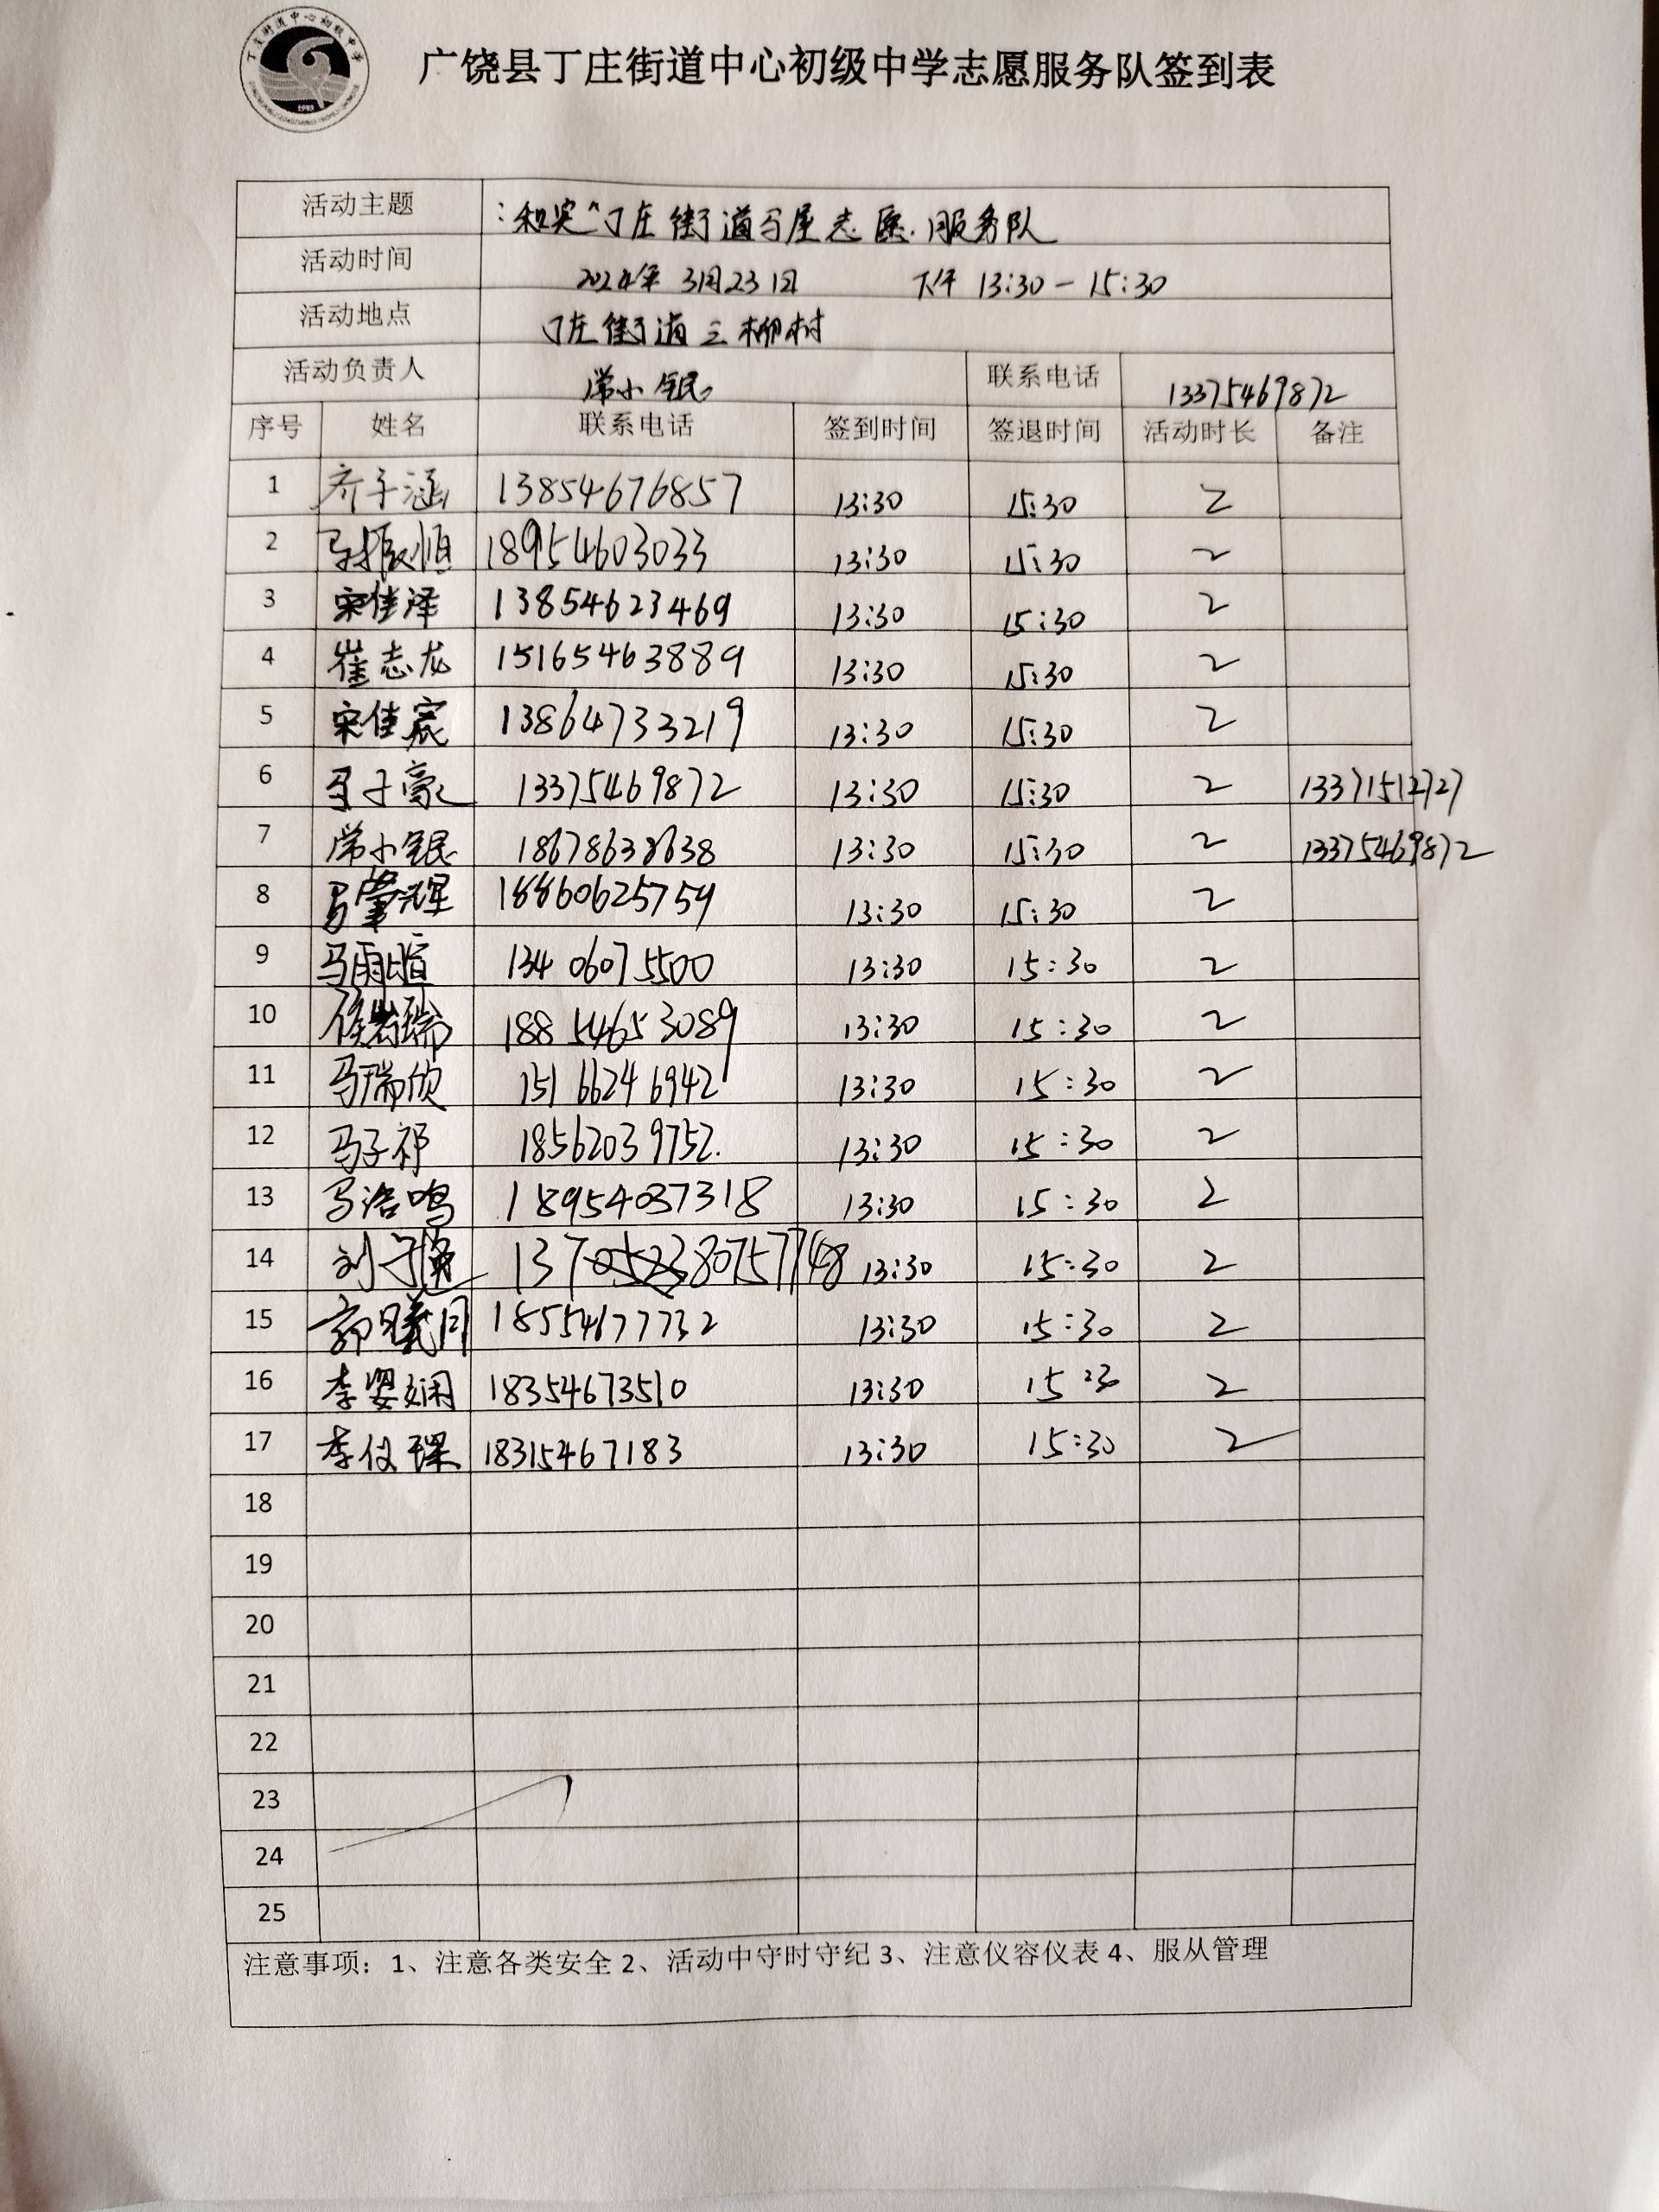 广饶县丁庄街道中心初级中学志愿服务队签到表
活动主题 丁庄街道马屋志愿服务队
活动时间 2024年3月23日 下午 13:30-15:30
活动地点 丁庄街道三柳村
活动负责人 常小银 联系电话 13375469872
序号 姓名 联系电话 签到时间 签退时间 活动时长 备注
1 齐子涵 13854676857 13:30 15:30 2
2 马振恒 18954603033 13:30 15:30 2
3 宋佳泽 13854623469 13:30 15:30 2
4 崔志龙 15165463889 13:30 15:30 2
5 宋佳宸 13864733219 13:30 15:30 2
6 马子豪 13375469872 13:30 15:30 2 13371512727
7 常小银 18678638638 13:30 15:30 2 13375469872
8 马肇辉 18860625759 13:30 15:30 2
9 马雨暄 13406075500 13:30 15:30 2
10 侯岩瑞 18854653089 13:30 15:30 2
11 马瑞欣 15166246942 13:30 15:30 2
12 马子祁 18562039752. 13:30 15:30 2
13 马浩鸣 18954037318 13:30 15:30 2
14 刘子 13:30 15:30 2
15 郭曦月 18554677732 13:30 15:30 2
16 李姿娴 18354673510 13:30 15:30 2
17 李仪琛 18315467183 13:30 15:30 2
18
19
20
21
22
23
24
25
注意事项：1、注意各类安全 2、活动中守时守纪 3、注意仪容仪表 4、服从管理